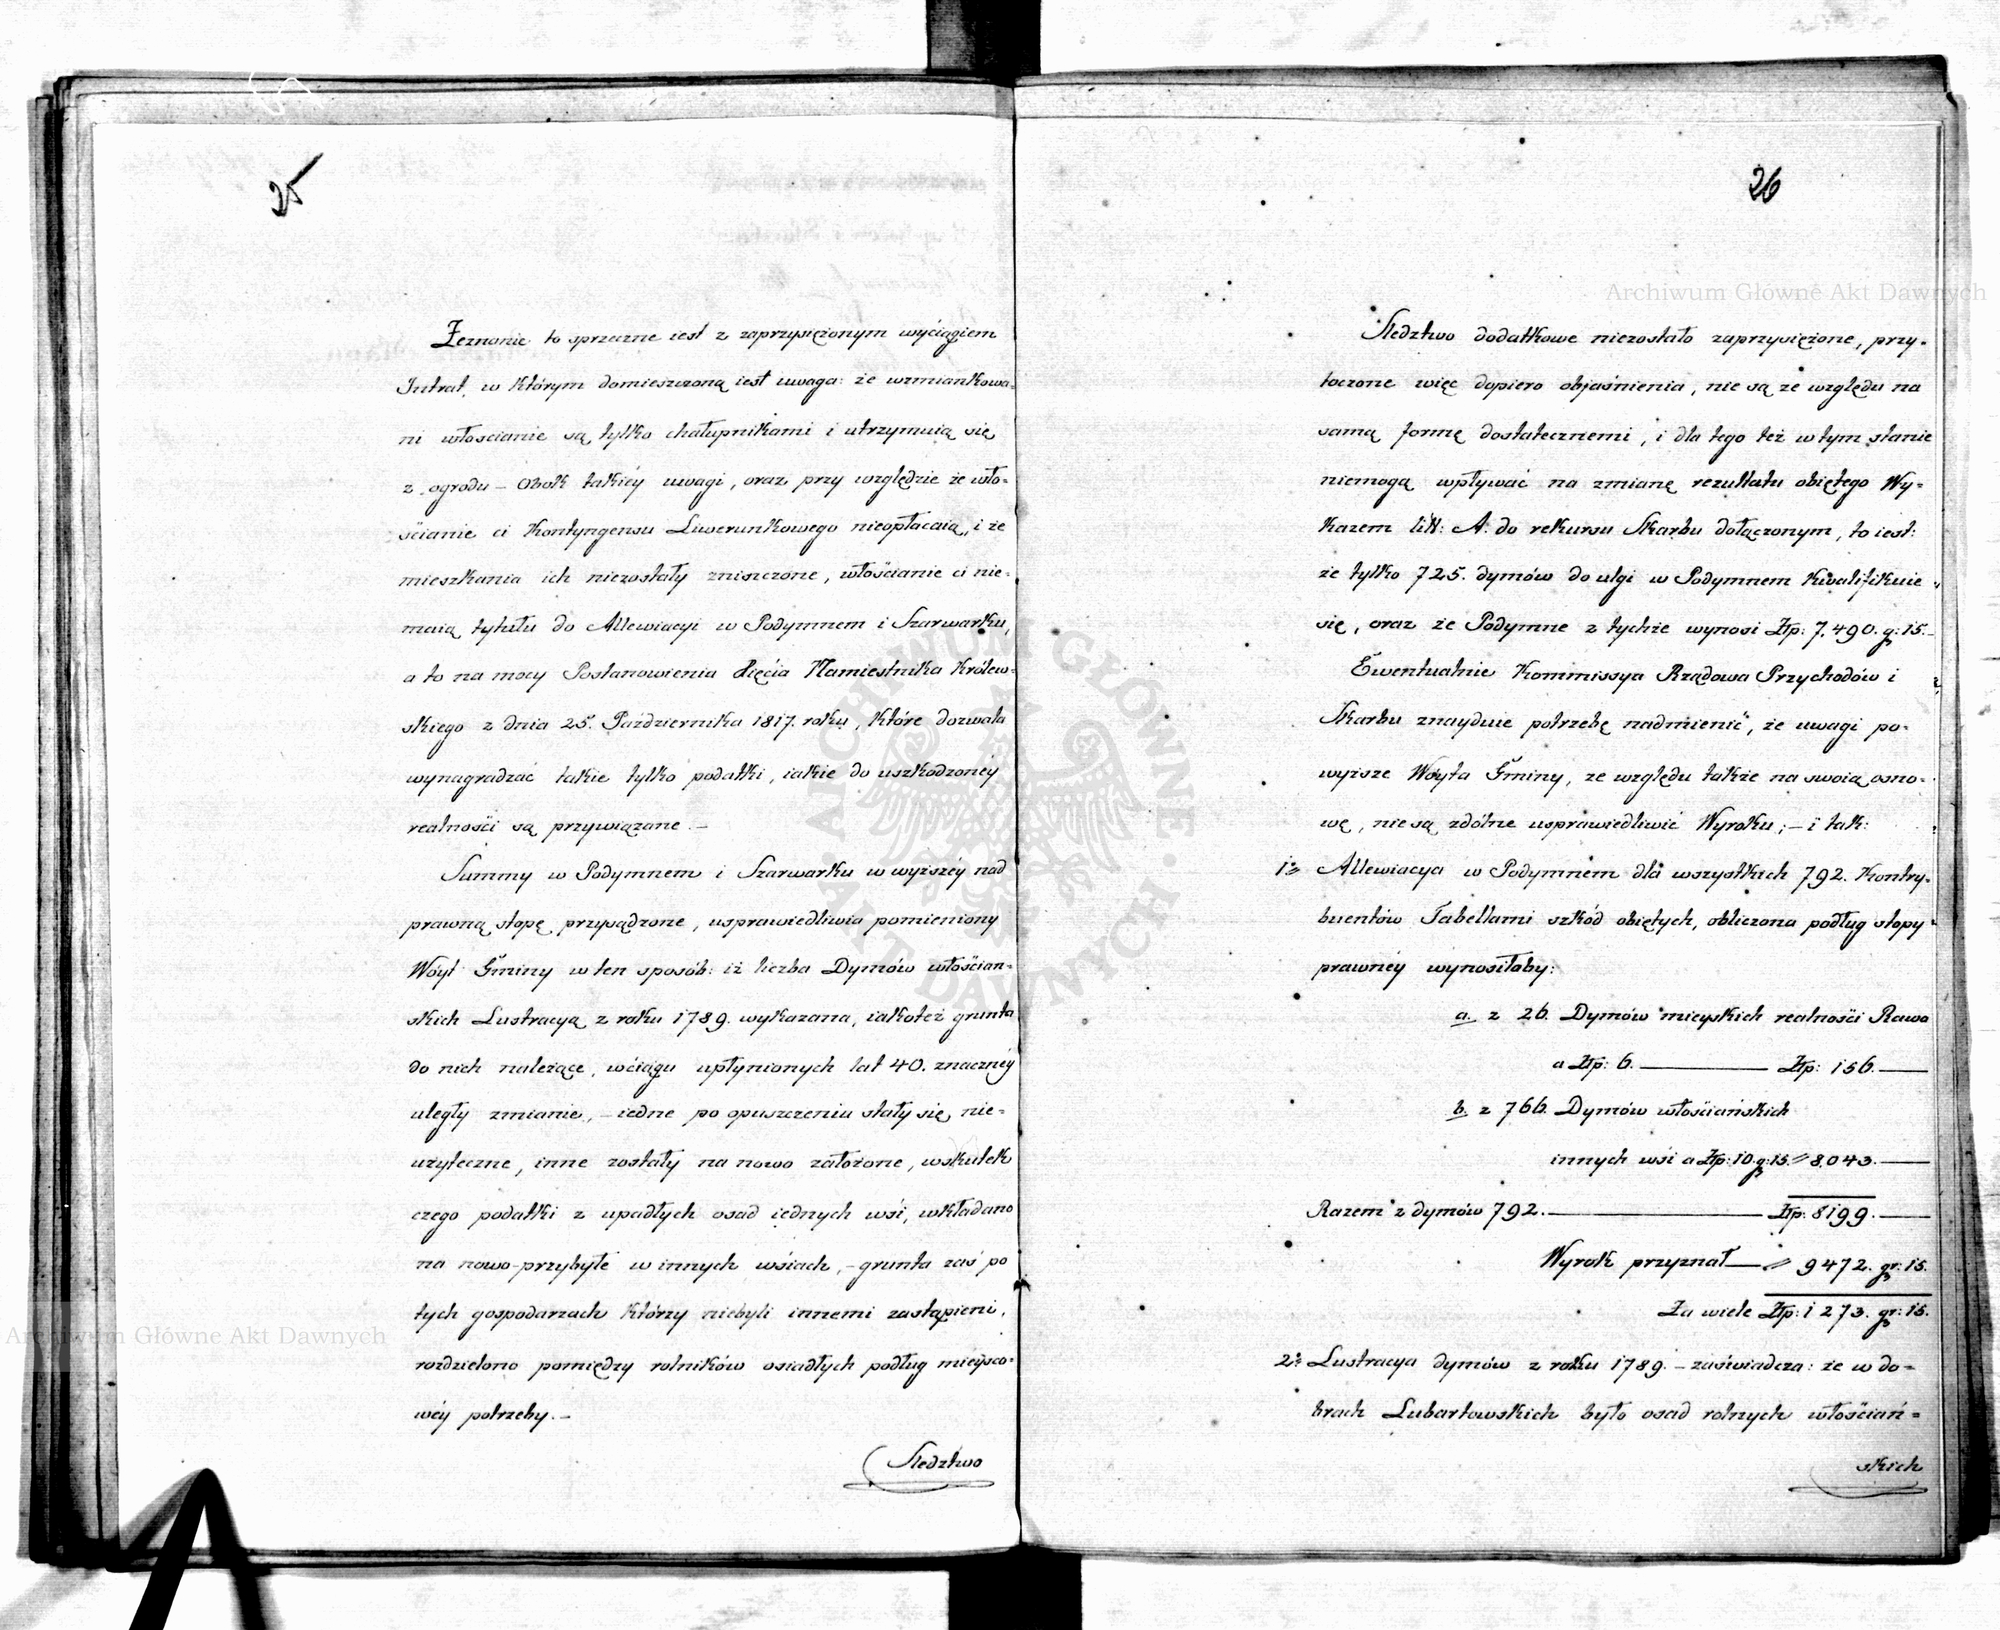 25
Zeznanie to sprzeczne iest z zaprzysiężonym wyciągiem
Intrat, w którym domieszczoną iest uwaga: że wzmiankowa=
ni włoscianie są tylko chałupnikami i utrzymuią się
z ogrodu – Obok takiéy uwagi, oraz przy względzie że wło=
ścianie ci Kontyngensu Liwerunkowego nieopłacaią, i że
mieszkania ich niezostały zniszczone, włościanie ci nie=
maią tytułu do Allewiacyi w Podymnem i Szarwarku,
a to na mocy Postanowienia Xięcia Namiestnika Królew=
skiego z dnia 25. Października 1817. roku, które dozwala
wynagradzać takie tylko podatki, iakie do uszkodzonéy
realności są przywiązane. –
Summy w Podymnem i Szarwarku w wyższéy nad
prawną stopę przysądzone, usprawiedliwia pomieniony
Woyt Gminy w ten sposób: iż liczba Dymów włościan=
skich Lustracyą z roku 1789. wykazana, iakoteż grunta
do nich należące, wciągu upłynionych lat 40. znacznéy
uległy zmianie, – iedne po opuszczeniu stały się nie=
użyteczne, inne zostały na nowo założone, wskutek
czego podatki z upadłych osad iednych wsi, wkładano
na nowo-przybyłe w innych wsiach, – grunta zaś po
tych gospodarzach którzy niebyli innemi zastąpieni,
rozdzielono pomiędzy rolników osiadłych podług mieysco=
wéy potrzeby. –
Sledztwo
26
Archiwum Główne Akt Dawnych
Sledztwo dodatkowe niezostało zaprzysiężone, przy=
toczone więc dopiero objaśnienia, nie są ze względu na
samą formę dostatecznemi, i dla tego też w tym stanie
niemogą wpływać na zmianę rezultatu obiętego Wy=
kazem litt: A. do rekursu Skarbu dołączonym, to iest:
że tylko 725. dymów do ulgi w Podymnem kwalifikuie
się, oraz że Podymne z tychże wynosi Złp: 7,490. g: 15.
Ewentualnie Kommissya Rządowa Przychodów i
Skarbu znayduie potrzebę nadmienić, że uwagi po=
wyższe Woyta Gminy, ze względu także na swoią osno=
wę, nie są zdólne usprawiedliwić Wyroku; – i tak:
1º Allewiacya w Podymnem dla wszystkich 792. Kontry=
buentów Tabellami szkód obiętych, obliczona podług stopy
prawnéy wynosiłaby:
a. z 26. Dymów mieyskich realności Rawa
a Złp: 6. — Złp: 156. —
b. z 766. Dymów włościańskich
innych wsi a Złp: 10. g: 15.〃 8,043. —
Razem z dymów 792. — Złp: 8199. —
Wyrok przyznał — 〃 9472. gr: 15.
Za wiele Złp: 1273. gr: 15.
2º Lustracya dymów z roku 1789. – zaświadcza: że w do=
brach Lubartowskich było osad rolnych włościań=
skich
Archiwum Główne Akt Dawnych
ARCHIWUM GŁÓWNE · AKT DAWNYCH ·